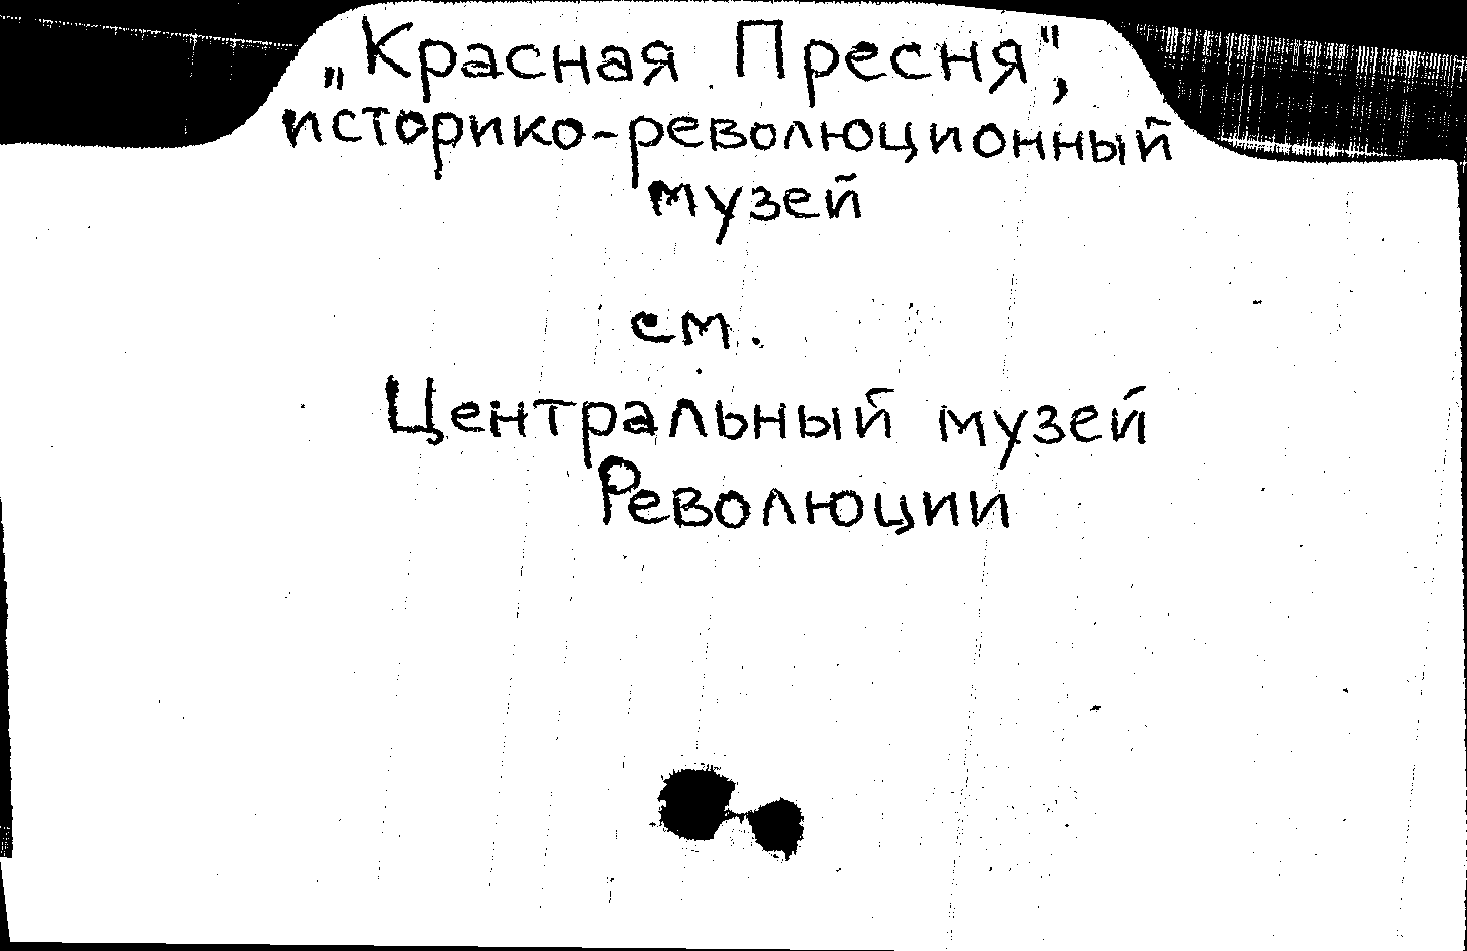 „Красная Пресня",
историко-революционный
музей
см.
Центральный музей
Революции